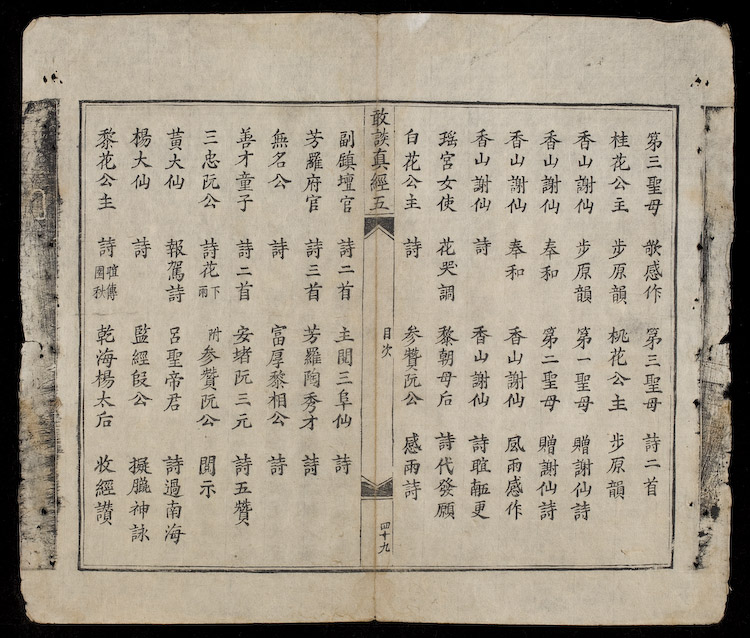 第三聖母 歌感作 第三聖母 詩二首
桂花公主 步原韻 桃花公主 步原韻
香山謝仙 步原韻 第一聖母 贈謝仙詩
香山謝仙 奉和 第二聖母 贈謝仙詩
香山謝仙 奉和 香山謝仙 風雨感作
香山謝仙 詩 香山謝仙 詩
瑶宮女使 花哭調 黎朝母后 詩代發願
白花公主 詩 參贊阮公 感雨詩
敢談真經五 目次 四十九
副鎮壇官 詩二首 主閣三阜仙 詩
芳羅府官 詩三首 芳羅陶秀才 詩
無名公 詩 富厚黎相公 詩
善才童子 詩二首 安堵阮三元 詩五贊
三忠阮公 詩花下雨 附參贊阮公 開示
黃大仙 報駕詩 呂聖帝君 詩過南海
楊大仙 詩 監經段公 擬臘神詠
黎花公主 詩 乾海楊太后 收經讚